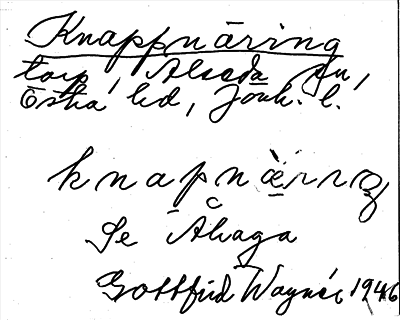 Knappnäring
torp, Alseda sn,
Östra hd, Jönk. l.
knapnæ̀rıŋ
Se Åhaga
Gottfrid Wagnér 1946